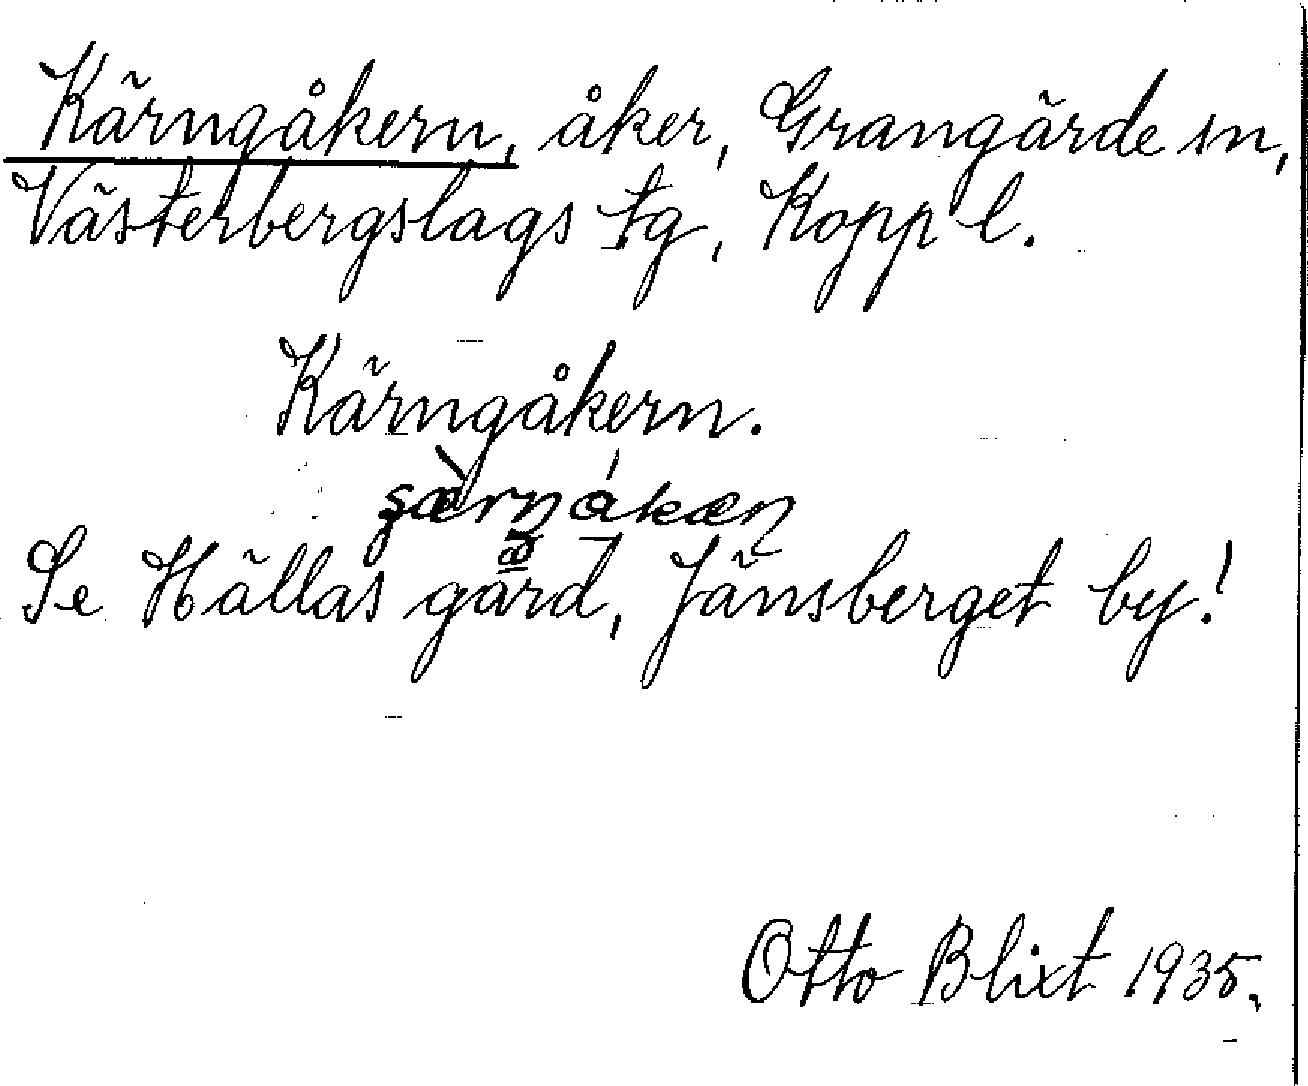 Kärngåkern, åker, Grangärde sn,
Västerbergslags tg, Kopp l.
Kärngåkern.
Se Hällas gård, Jänsberget by!
Otto Blixt 1935.